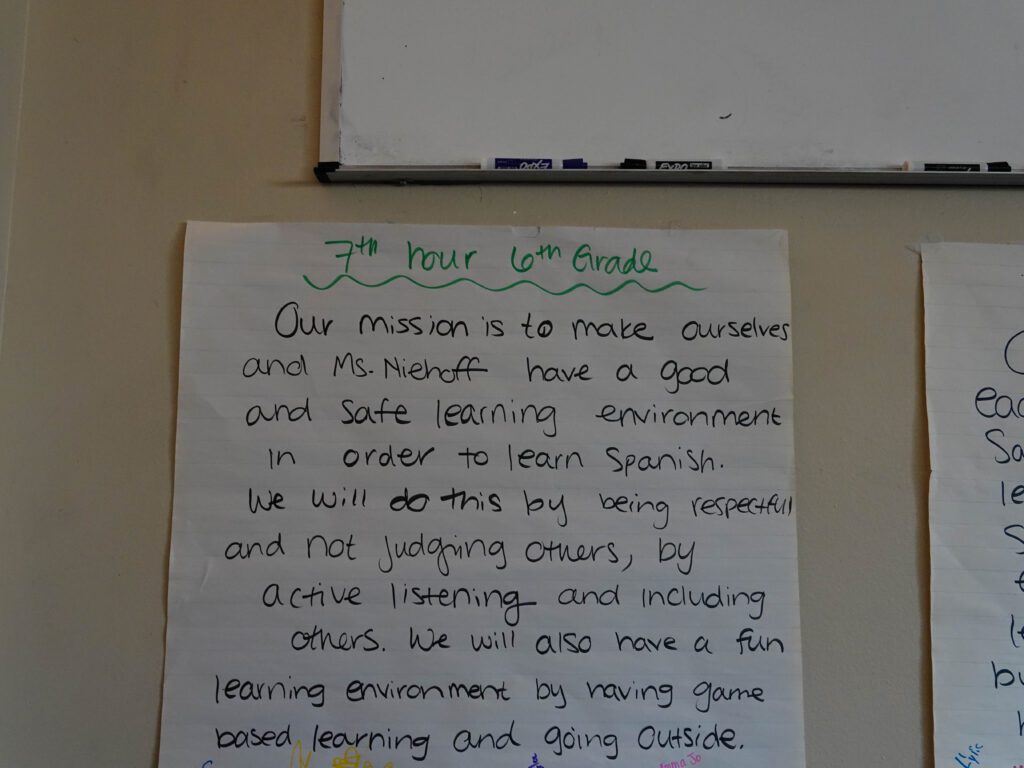 EXPO
EXPO
7th hour 6th Grade
Our mission is to make ourselves
and Ms. Niehoff have a good
and safe learning environment
in order to learn Spanish.
We will do this by being respectfull
and not judgning others, by
active listening and including
others. We will also have a fun
learning environment by having game
based learning and going outside.
Emma Jo
eac
Sa
le
S
t
le
bu
h
Lyric